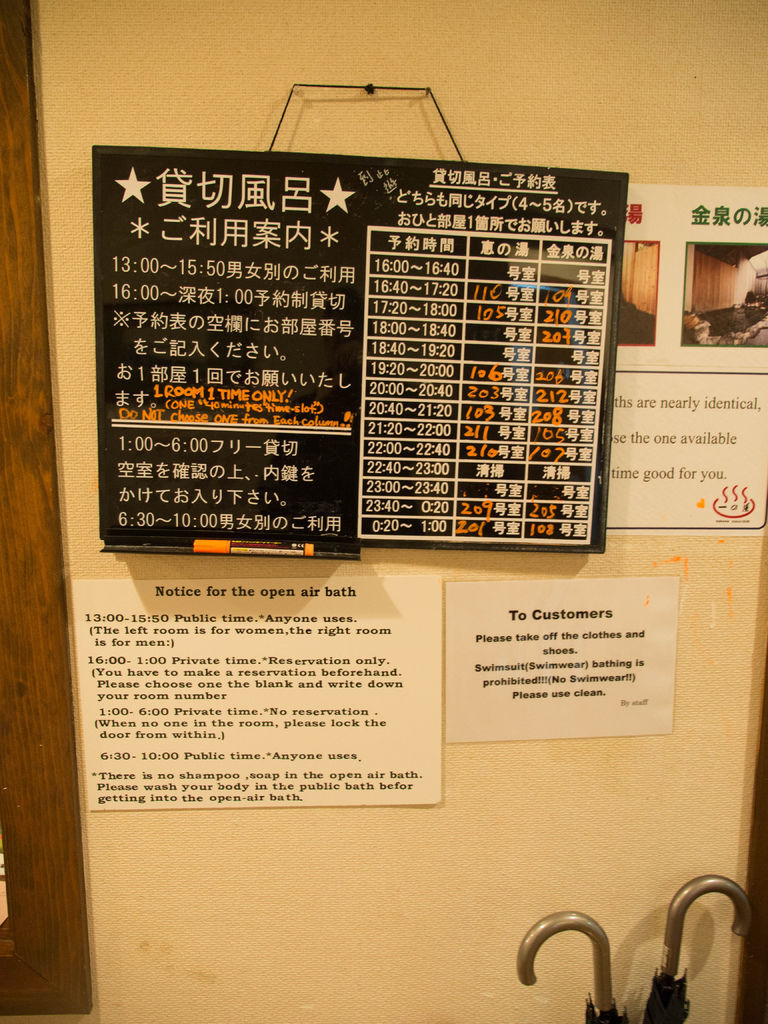 ★貸切風呂★
＊ご利用案内＊
13:00～15:50男女別のご利用
16:00～深夜1:00予約制貸切
※予約表の空欄にお部屋番号
をご記入ください。
お1部屋1回でお願いいたし
ます。
1 ROOM 1 TIME ONLY!
(ONE "40minutes" time-slot)
DO NOT choose ONE from Each column..!!
1:00～6:00フリー貸切
空室を確認の上、内鍵を
かけてお入り下さい。
6:30～10:00男女別のご利用
貸切風呂・ご予約表
どちらも同じタイプ(4～5名)です。
おひと部屋1箇所でお願いします。
予約時間 恵の湯 金泉の湯
16:00～16:40 号室 号室
16:40～17:20 110号室 104号室
17:20～18:00 105号室 210号室
18:00～18:40 号室 207号室
18:40～19:20 号室 号室
19:20～20:00 106号室 206号室
20:00～20:40 203号室 212号室
20:40～21:20 103号室 208号室
21:20～22:00 211号室 105号室
22:00～22:40 210号室 107号室
22:40～23:00 清掃 清掃
23:00～23:40 号室 号室
23:40～ 0:20 209号室 205号室
0:20～ 1:00 201号室 108号室
湯
金泉の湯
ths are nearly identical,
se the one available
time good for you.
Notice for the open air bath
13:00-15:50 Public time.*Anyone uses.
(The left room is for women,the right room
is for men:)
16:00- 1:00 Private time.*Reservation only.
(You have to make a reservation beforehand.
Please choose one the blank and write down
your room number
1:00- 6:00 Private time.*No reservation .
(When no one in the room, please lock the
door from within.)
6:30- 10:00 Public time.*Anyone uses.
*There is no shampoo ,soap in the open air bath.
Please wash your body in the public bath befor
getting into the open-air bath.
To Customers
Please take off the clothes and
shoes.
Swimsuit(Swimwear) bathing is
prohibited!!!(No Swimwear!!)
Please use clean.
By staff